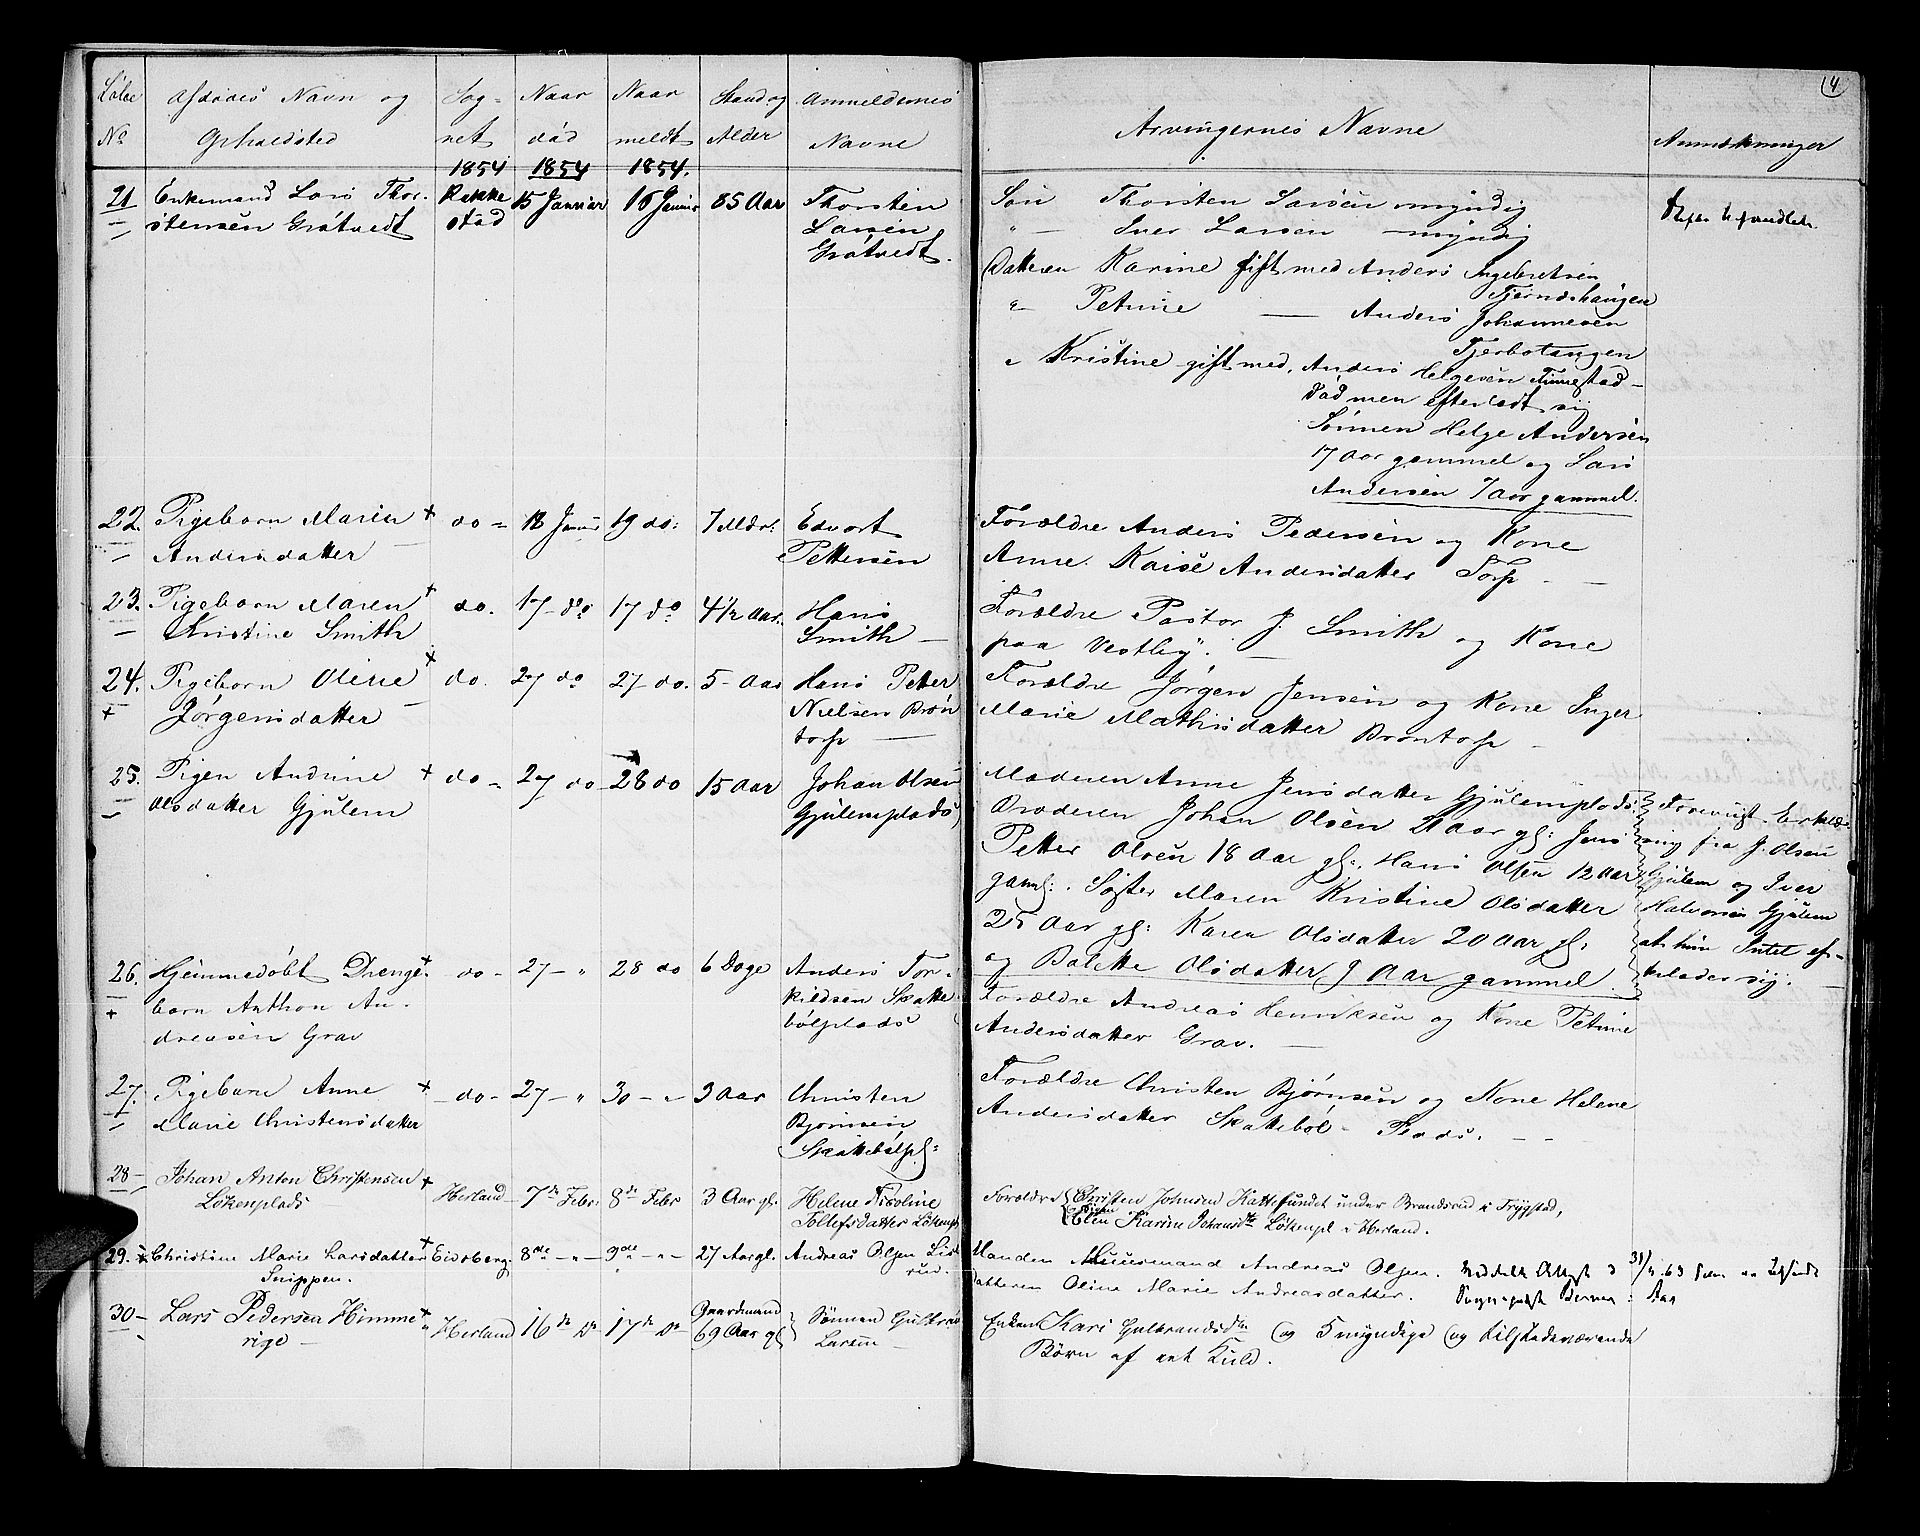 4
Løbe No | Afdødes Navn og Opholdssted | Sognet | Naar død | Naar meldt | Stand og Alder | Anmeldernes Navne | Arvingernes Navne | Anmærkninger
1854 | 1854 | 1854.
21 Enkemand Lars Thor- | Rakke | 15 Januar | 16 Januar | 85 Aar | Thorsten | Søn Thorsten Larsen myndig
stensen Gråtvedt | stad | Larsen | " — Iver Larsen — myndig
Gråtvedt. | Datteren Karine gift med Anders Ingebretsen
Tjerneshaugen
" Petrine — Anders Johannesen
Tjerbotangen
" Kristine gift med, Anders Helgesen Finnestad-
død men efterladt sig
Sønnen Helge Andersen
17 Aar gammel og Lars
Andersen 7 Aar gammel.
22. Pigebarn Maren + | do - | 18 Janr | 19 do: | 7 Mdr: | Edvort | Forældre Anders Pedersen og Kone
Andersdatter — | Pettersen | Anne Kaise Andersdatter Torp —
23. Pigebarn Maren + | do. | 17 - do | 17 do | 4½ Aar. | Hans | Forældre Pastor J. Smith og Kone
Kristine Smith | Smith — | paa Vestby. —
24. Pigebarn Oline + | do. | 27 do | 27 do. | 5 - Aar | Hans Petter | Forældre Jørgen Jensen og Kone Inger
+ Jørgensdatter — | Nielsen Brøn | Marie Mathisdatter Brøntorp —
torp —
25. Pigen Andrine + | do - | 27 do | 28 do | 15 Aar | Johan Olsen | Moderen Anne Jensdatter Gjulemplads.
Olsdatter Gjulem | Gjulemplads | Broderen Johan Olsen 21 Aar gl: Jens | ring fra J. Olsen
Petter Olsen 18 Aar gl:, Hans Olsen 12 Aar | Gjulem og Iver
gaml:. Søster Maren Kristine Olsdatter | Halvorsen Gjulem
25 Aar gl: Karen Olsdatter 20 Aar gl: | at hun Intet ef-
og Bolette Olsdatter 9 Aar gammel. | terlader sig. —
26. Hjemmedøbt Drenge- + | do - | 27 - " | 28 do | 6 Dage | Anders Tor- | Forældre Andreas Henriksen og Kone Petrine
+ barn Anthon An- | kildsen Skatte | Andersdatter Grav. —
dreasen Grav | bølplads
27. Pigebarn Anne + | - do - | 27 - " | 30 - " | 3 Aar | Christen | Forældre Christen Bjørnsen og Kone Helene
Marie Christensdatter | Bjørnsen | Andersdatter Skattebøl - Plads. — —
Skattebølpl:
28 - Johan Anton Christensen + | Herland | 7de Febr. | 8de Febr | 3 Aar gl. | Helene Nicoline | Forældre Christen Johnsen Kattefundet under Brandsrud i Trygstad,
Løkenplads | Tollefsdatter Løkenpl | Elen Karine Johansdtr Løkenpl i Herland.
29. + Christine Marie Larsdatter + | Eidsberg | 8de - " - | 9de - " - | 27 Aar gl. | Andreas Olsen List | Manden Huusmand Andreas Olsen.
Snippen. | rud. | Datteren Oline Marie Andreasdatter.
30 - Lars Pedersen Himme + | Herland | 16de Do | 17de Do | Gaardmand | Sønnen Gulbran | Enken Kari Gulbrandsdtr og 5 myndige og tilstedeværende
rige — | 69 Aar gl | Larsen — | Børn af eet Kuld.